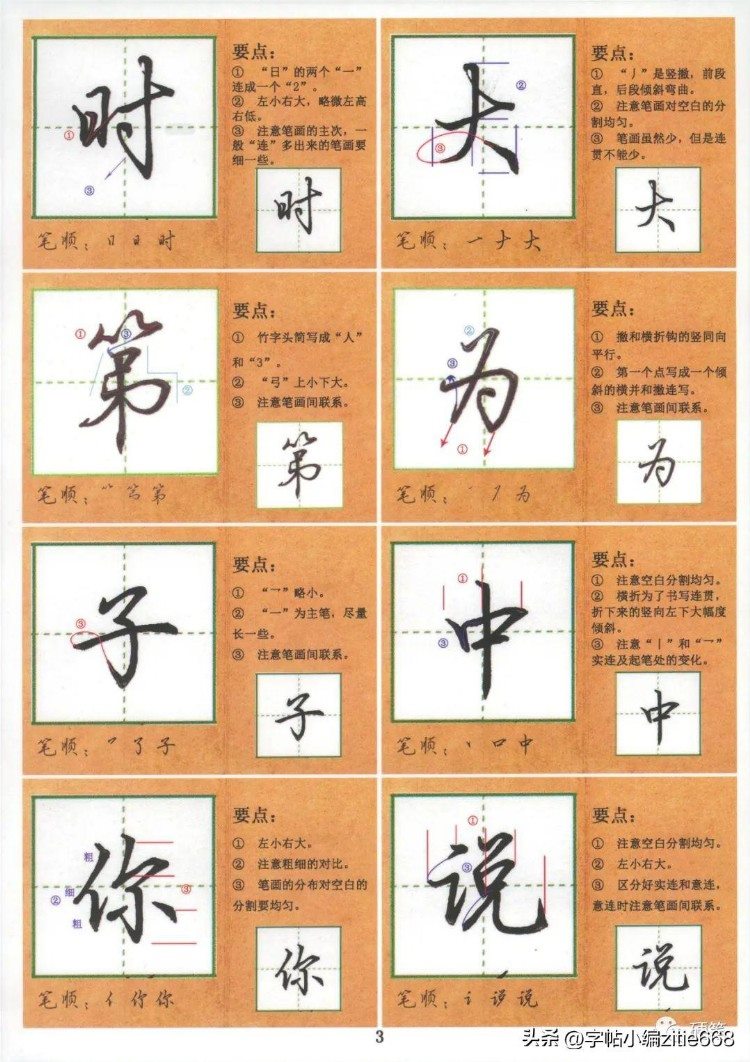 时
①
③
要点：
① “日”的两个“一”
连成一个“2”。
② 左小右大，略微左高
右低。
③ 注意笔画的主次，一
般“连”多出来的笔画要
细一些。
时
笔顺：日 日 时
大
②
③
要点：
① “丿”是竖撇，前段
直，后段倾斜弯曲。
② 注意笔画对空白的分
割均匀。
③ 笔画虽然少，但是连
贯不能少。
大
笔顺：一 ナ 大
第
①
③
②
要点：
① 竹字头简写成“人”
和“3”。
② “弓”上小下大。
③ 注意笔画间联系。
第
笔顺：第
为
②
③
①
要点：
① 撇和横折钩的竖同向
平行。
② 第一个点写成一个倾
斜的横并和撇连写。
③ 注意笔画间联系。
为
笔顺：为
子
③
要点：
① “乛”略小。
② “一”为主笔，尽量
长一些。
③ 注意笔画间联系。
子
笔顺：乛 了 子
中
①
③
要点：
① 注意空白分割均匀。
② 横折为了书写连贯，
折下来的竖向左下大幅度
倾斜。
③ 注意“丨”和“乛”
实连及起笔处的变化。
中
笔顺：丶 口 中
你
粗
②细
粗
③
要点：
① 左小右大。
② 注意粗细的对比。
③ 笔画的分布对空白的
分割要均匀。
你
笔顺：亻 你 你
说
①
③
要点：
① 注意空白分割均匀。
② 左小右大。
③ 区分好实连和意连，
意连时注意笔画间联系。
说
笔顺：讠 说 说
3
硬笔
头条 @字帖小编zitie668